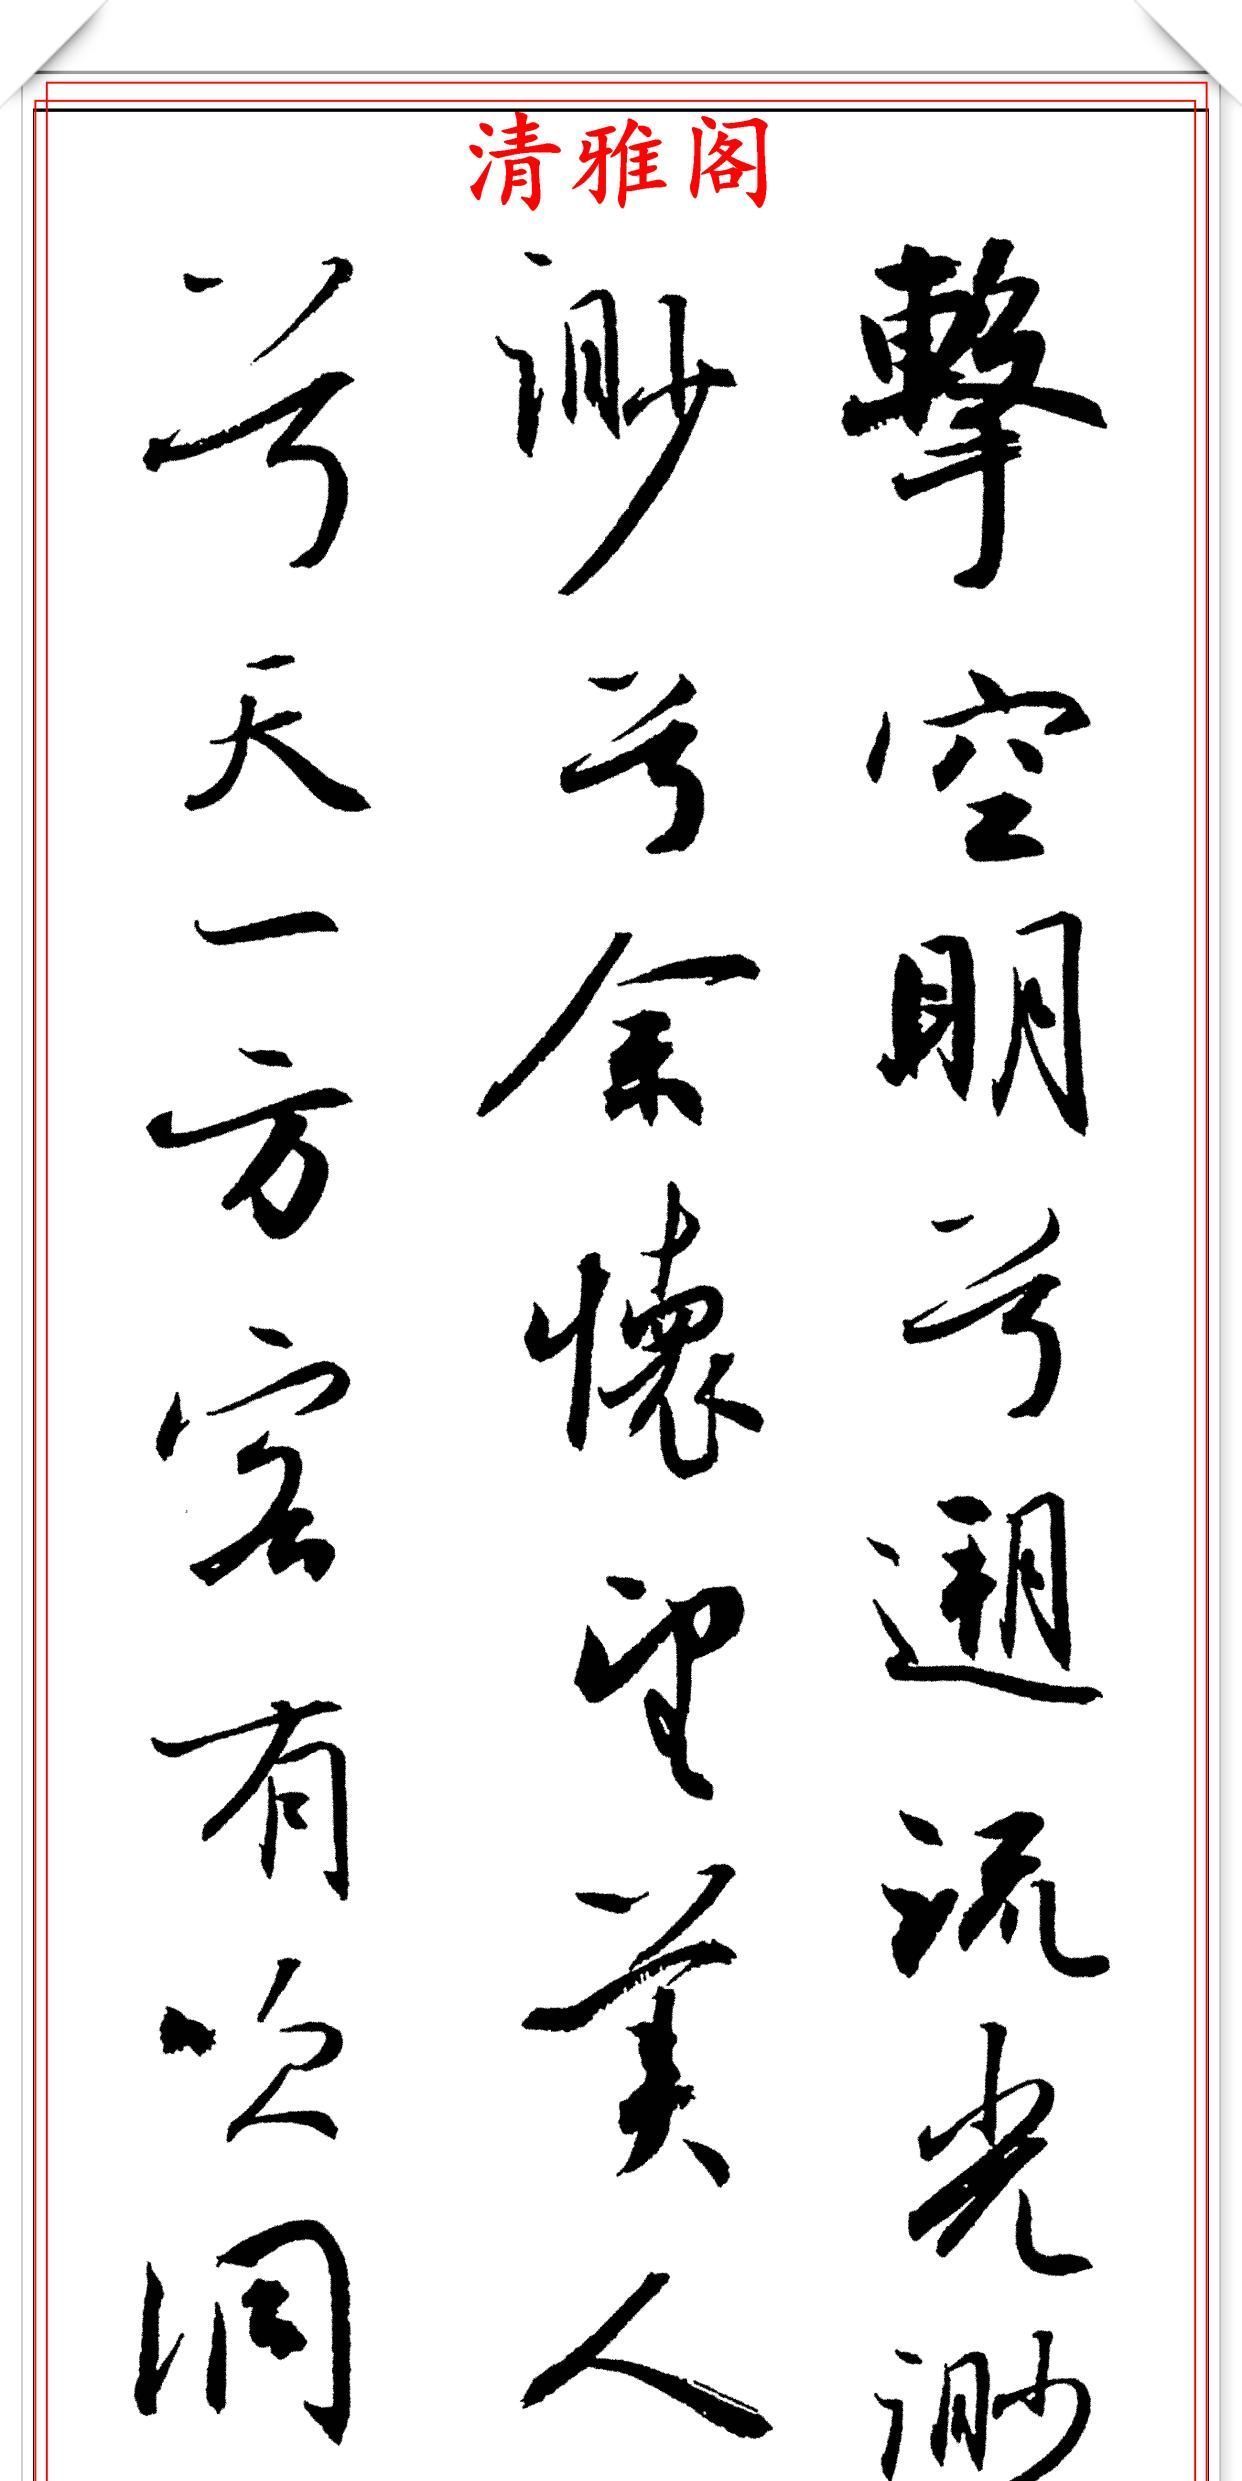 清雅阁
擊空明兮遡流光渺
渺兮余懷望美人
兮天一方客有吹洞